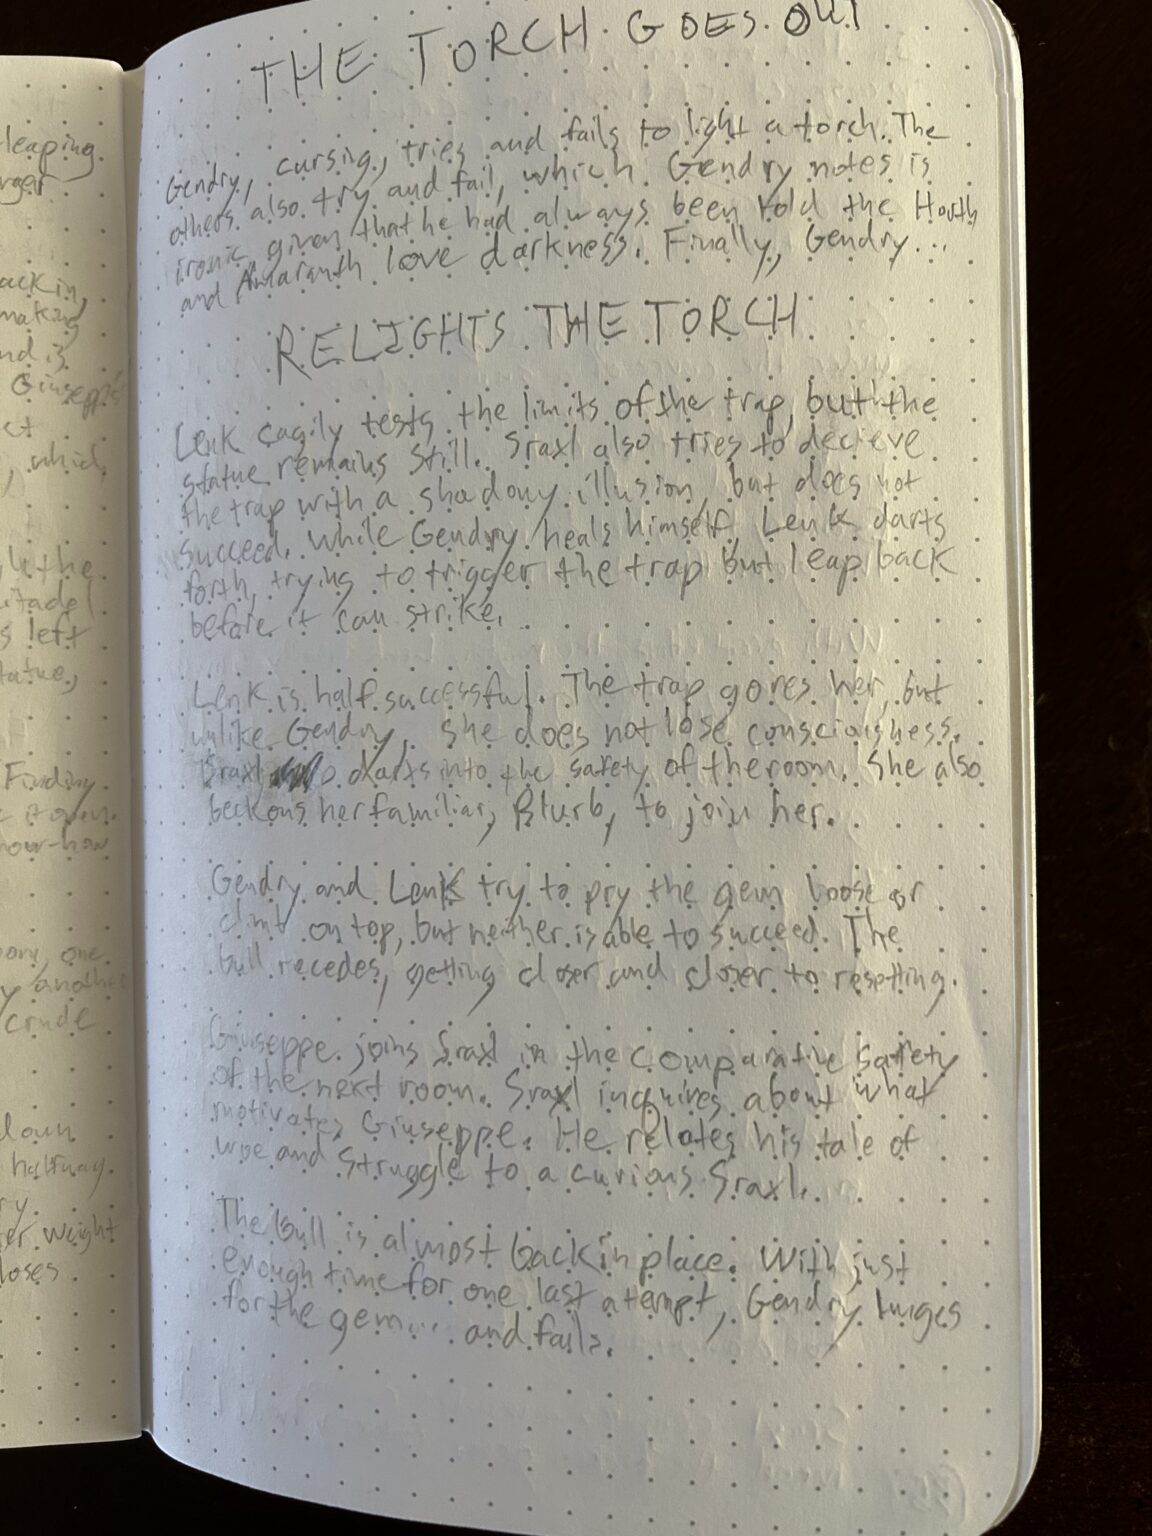 leaping
rger
ackin,
making
nd is
Giuseppe's
ct
, which
the
itadel
s left
tatue,
Finding
t open.
hour-how
oom, one
y another
crude
down
halfway.
ry
er weight
loses
THE TORCH GOES OUT
Gendry, cursing, tries and fails to light a torch. The
others also try and fail, which Gendry notes is
ironic, given that he had always been told the Houth
and Amaranth love darkness. Finally, Gendry...
RELIGHTS THE TORCH
Lenk cagily tests the limits of the trap, but the
statue remains still. Sraxl also tries to decieve
the trap with a shadowy illusion, but does not
succeed. While Gendry heals himself, Lenk darts
forth, trying to trigger the trap but leap back
before it can strike.
Lenk is half successful. The trap gores her, but
unlike Gendry, she does not lose consciousness.
Sraxl darts into the safety of the room. She also
beckons her familiar, Blurb, to join her.
Gendry and Lenk try to pry the gem loose or
climb on top, but neither is able to succeed. The
bull recedes, getting closer and closer to resetting.
Giuseppe joins Sraxl in the comparative safety
of the next room. Sraxl inquires about what
motivates Giuseppe. He relates his tale of
woe and struggle to a curious Sraxl.
The bull is almost back in place. With just
enough time for one last attempt, Gendry lunges
for the gem... and fails.